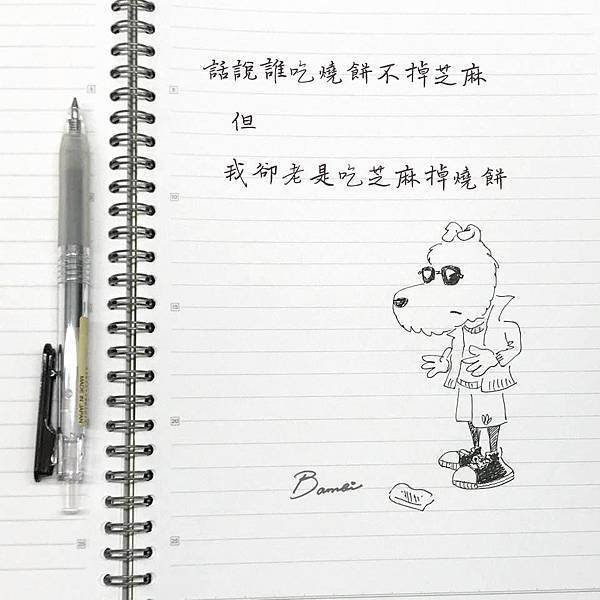 話說誰吃燒餅不掉芝麻
但
我卻老是吃芝麻掉燒餅
Bambi
MADE IN JAPAN
5
10
15
20
25